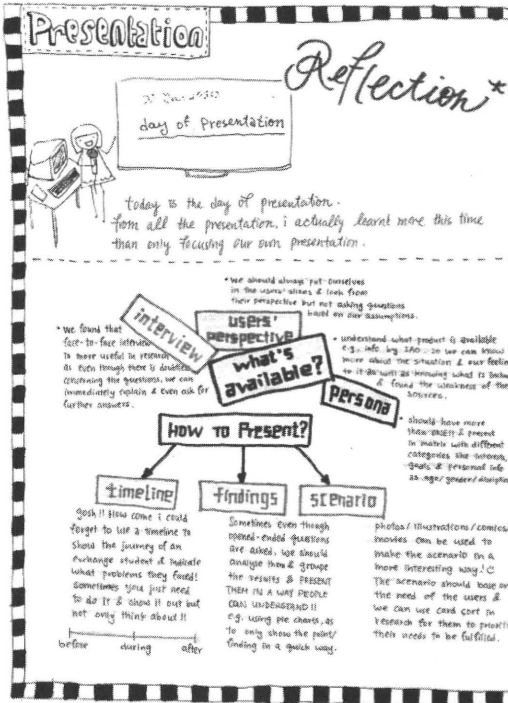 Presentation
Reflection*
day of Presentation
today is the day of presentation.
from all the presentation, i actually learnt more this time
than only focusing our own presentation.
• we should always put ourselves
in the users' shoes & look from
their perspective but not asking questions
based on our assumptions.
interview
users'
perspective
what's
available?
persona
• we found that
face-to-face interview
is more useful in research
as even though there is doubt
concerning the questions, we can
immediately explain & even ask for
further answers.
• understand what product is available
e.g. info by so we can know
more about the situation & our feelin
to it as well as knowing what is
& found the weakness of the
sources.
• should have more
than & present
in matrix with different
categories like interests,
goals & personal info
as age/gender/disciplin
HOW TO Present?
timeline
findings
scenario
gosh!! How come i could
forget to use a timeline to
show the journey of an
exchange student & indicate
what problems they faced!
Sometimes you just need
to do it & show it out but
not only think about!!
before during after
Sometimes even though
opened-ended questions
are asked, we should
analyse them & groupe
the results & PRESENT
THEM IN A WAY PEOPLE
CAN UNDERSTAND!!
e.g. using pie charts, as
to only show the point/
finding in a quick way.
photos/illustrations/comics/
movies can be used to
make the scenario in a
more interesting way!
The scenario should base on
the need of the users &
we can use card sort in
research for them to prioriti
their needs to be fulfilled.